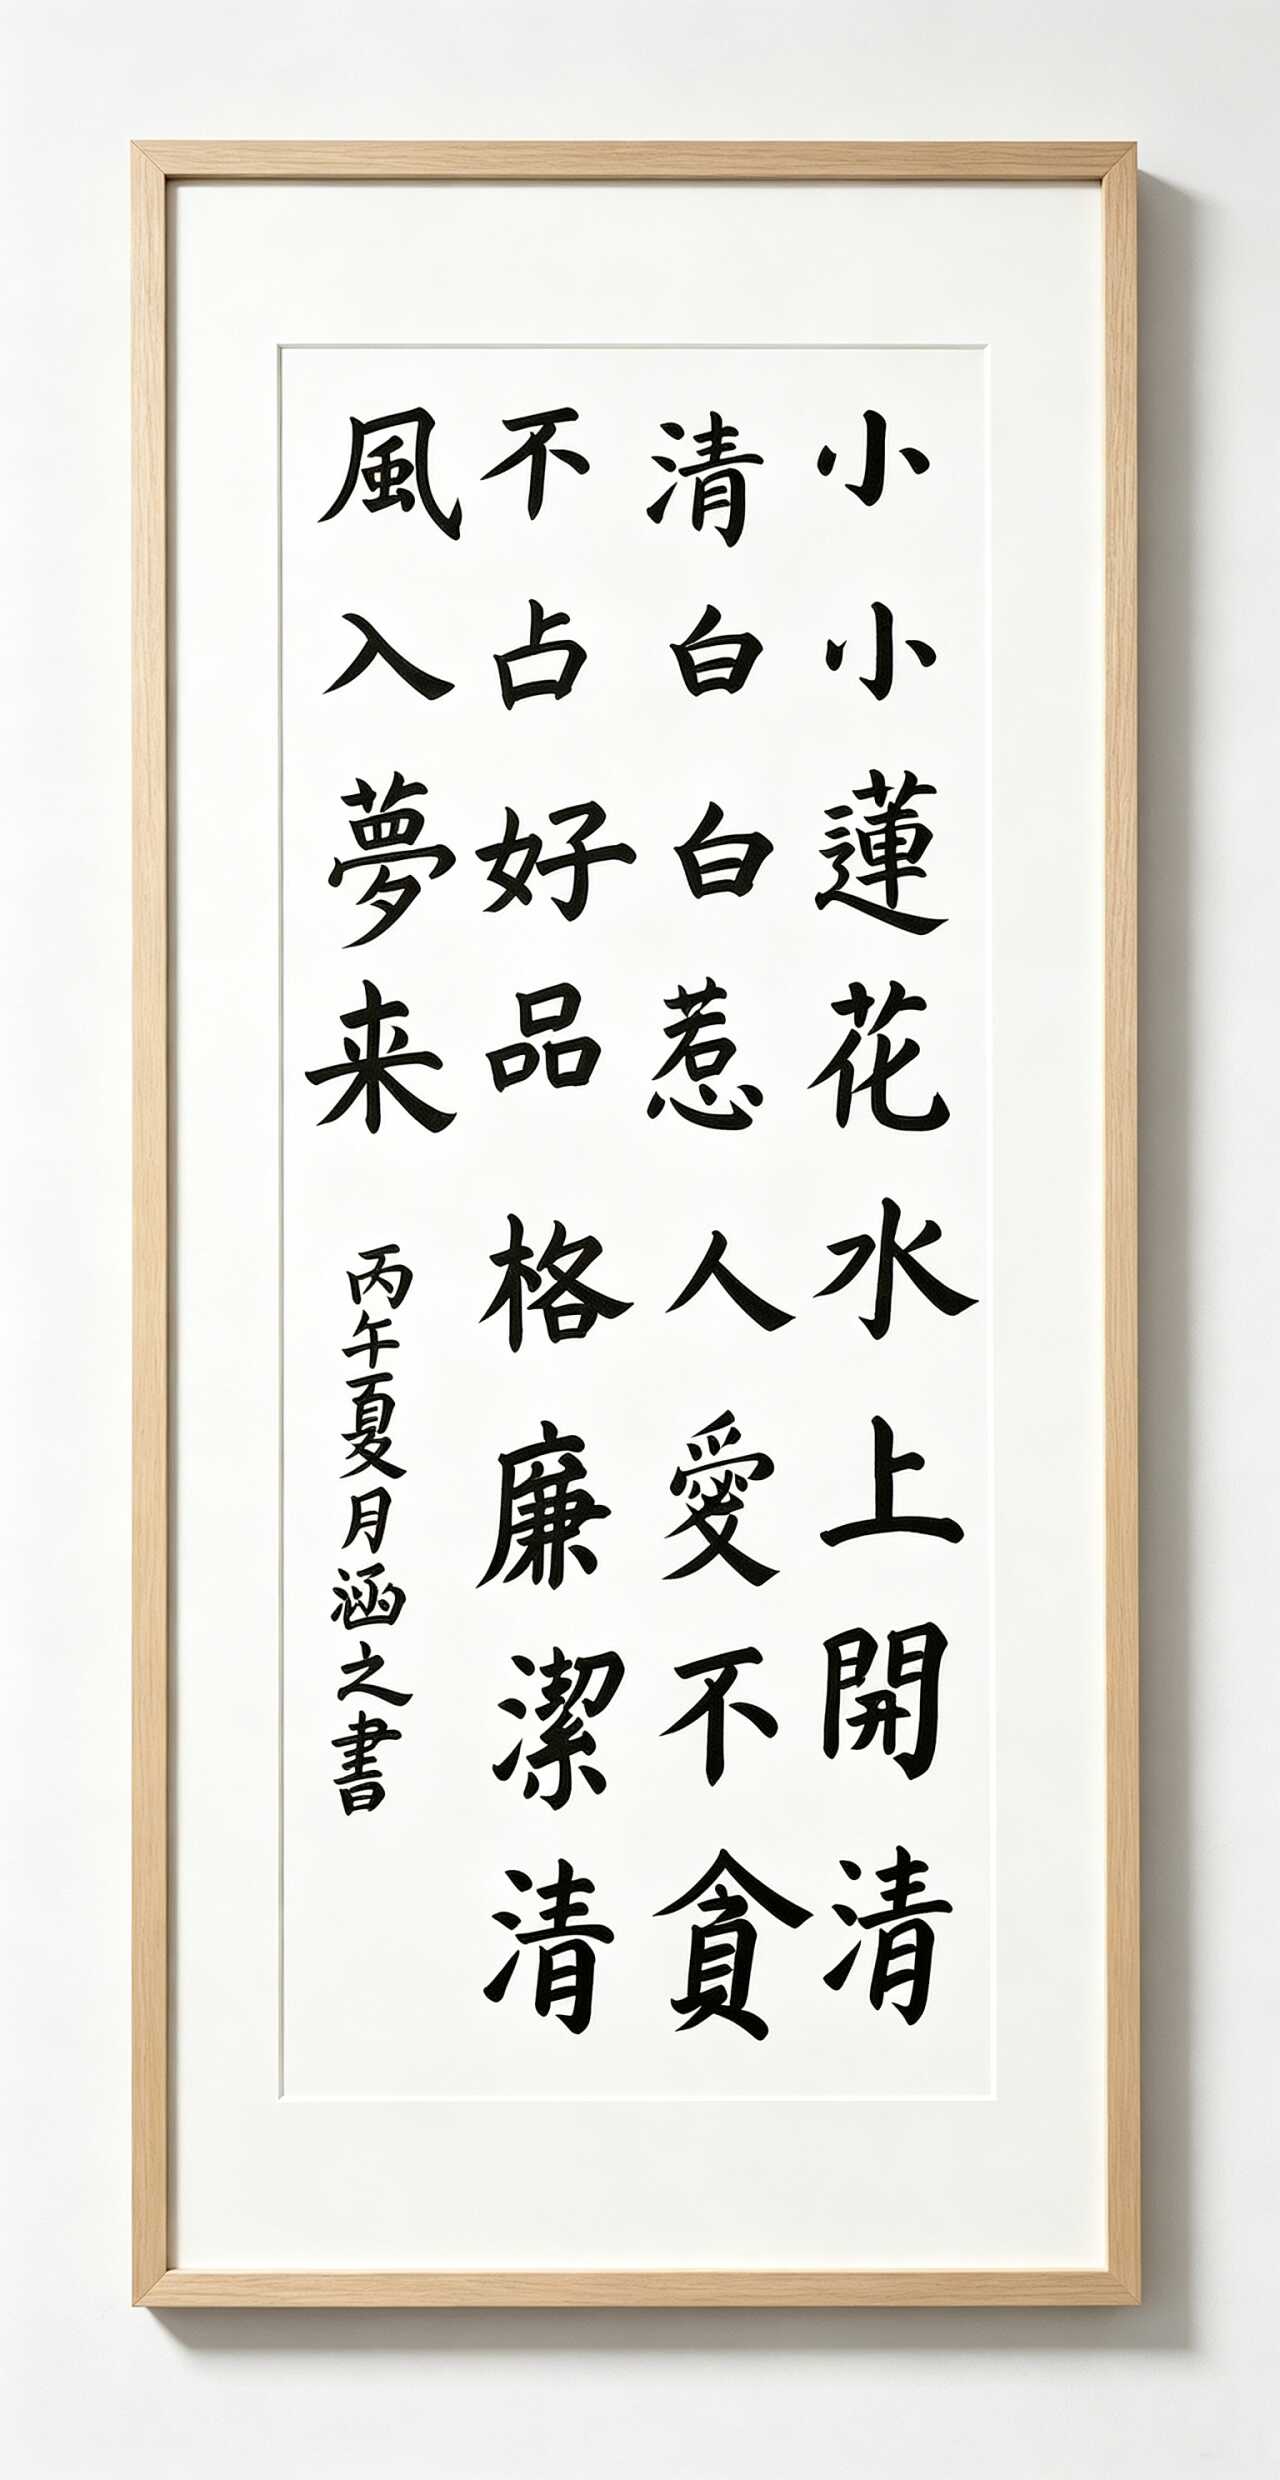 小小蓮花水上開清
清白白惹人愛不貪
不占好品格廉潔清
風入夢来
丙午夏月涵之書